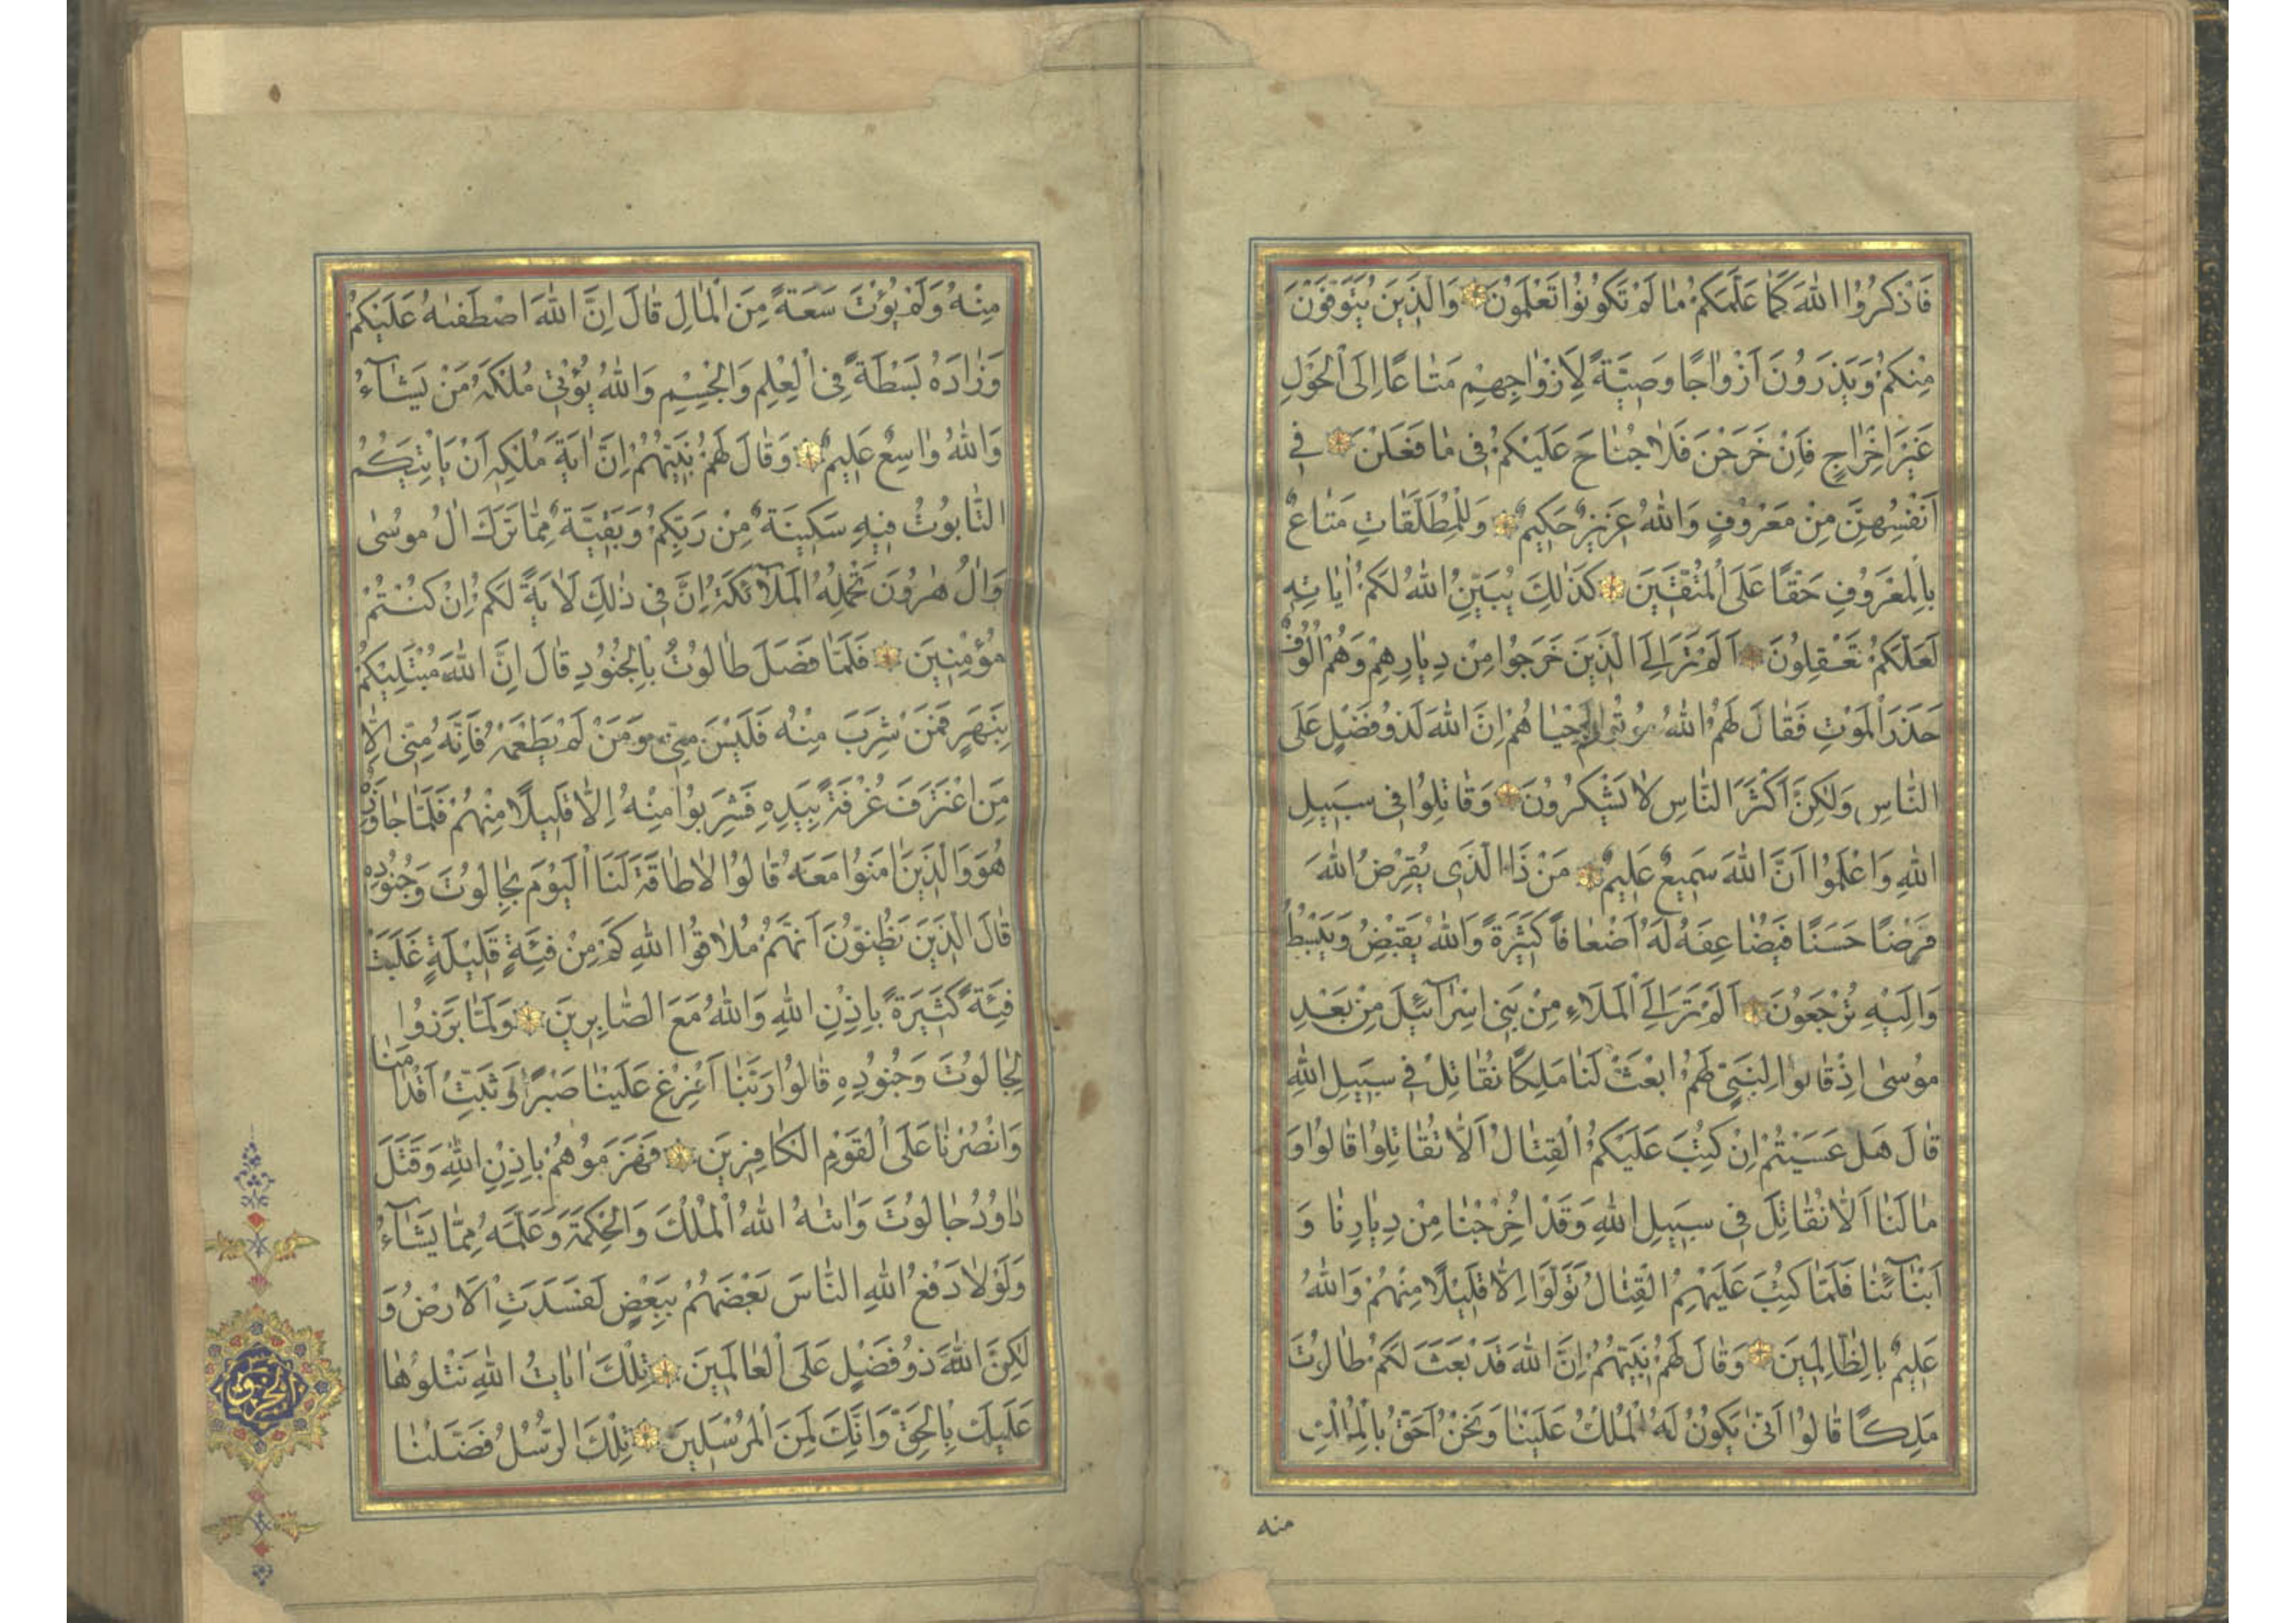 فَاذْكُرُوا اللهَ كَمَا عَلَّمَكُمْ مَا لَمْ تَكُونُوا تَعْلَمُونَ وَالَّذِينَ يُتَوَفَّوْنَ
مِنْكُمْ وَيَذَرُونَ أَزْوَاجًا وَصِيَّةً لِأَزْوَاجِهِمْ مَتَاعًا إِلَى الْحَوْلِ
غَيْرَ إِخْرَاجٍ فَإِنْ خَرَجْنَ فَلَا جُنَاحَ عَلَيْكُمْ فِي مَا فَعَلْنَ فِي
أَنْفُسِهِنَّ مِنْ مَعْرُوفٍ وَاللهُ عَزِيزٌ حَكِيمٌ وَلِلْمُطَلَّقَاتِ مَتَاعٌ
بِالْمَعْرُوفِ حَقًّا عَلَى الْمُتَّقِينَ كَذَلِكَ يُبَيِّنُ اللهُ لَكُمْ اٰيَاتِهِ
لَعَلَّكُمْ تَعْقِلُونَ أَلَمْ تَرَ إِلَى الَّذِينَ خَرَجُوا مِنْ دِيَارِهِمْ وَهُمْ أُلُوفٌ
حَذَرَ الْمَوْتِ فَقَالَ لَهُمُ اللهُ مُوتُوا ثُمَّ أَحْيَاهُمْ إِنَّ اللهَ لَذُو فَضْلٍ عَلَى
النَّاسِ وَلَكِنَّ أَكْثَرَ النَّاسِ لَا يَشْكُرُونَ وَقَاتِلُوا فِي سَبِيلِ
اللهِ وَاعْلَمُوا أَنَّ اللهَ سَمِيعٌ عَلِيمٌ مَنْ ذَا الَّذِي يُقْرِضُ اللهَ
قَرْضًا حَسَنًا فَيُضَاعِفَهُ لَهُ أَضْعَافًا كَثِيرَةً وَاللهُ يَقْبِضُ وَيَبْسُطُ
وَإِلَيْهِ تُرْجَعُونَ أَلَمْ تَرَ إِلَى الْمَلَاءِ مِنْ بَنِي إِسْرَآئِيلَ مِنْ بَعْدِ
مُوسَى إِذْ قَالُوا لِنَبِيٍّ لَهُمُ ابْعَثْ لَنَا مَلِكًا نُقَاتِلْ فِي سَبِيلِ اللهِ
قَالَ هَلْ عَسَيْتُمْ إِنْ كُتِبَ عَلَيْكُمُ الْقِتَالُ أَلَّا تُقَاتِلُوا قَالُوا وَ
مَا لَنَا أَلَّا نُقَاتِلَ فِي سَبِيلِ اللهِ وَقَدْ أُخْرِجْنَا مِنْ دِيَارِنَا وَ
أَبْنَآئِنَا فَلَمَّا كُتِبَ عَلَيْهِمُ الْقِتَالُ تَوَلَّوْا إِلَّا قَلِيلًا مِنْهُمْ وَاللهُ
عَلِيمٌ بِالظَّالِمِينَ وَقَالَ لَهُمْ نَبِيُّهُمْ إِنَّ اللهَ قَدْ بَعَثَ لَكُمْ طَالُوتَ
مَلِكًا قَالُوا أَنَّى يَكُونُ لَهُ الْمُلْكُ عَلَيْنَا وَنَحْنُ أَحَقُّ بِالْمُلْكِ
منه
مِنْهُ وَلَمْ يُؤْتَ سَعَةً مِنَ الْمَالِ قَالَ إِنَّ اللهَ اصْطَفٰيهُ عَلَيْكُمْ
وَزَادَهُ بَسْطَةً فِي الْعِلْمِ وَالْجِسْمِ وَاللهُ يُؤْتِي مُلْكَهُ مَنْ يَشَآءُ
وَاللهُ وَاسِعٌ عَلِيمٌ وَقَالَ لَهُمْ نَبِيُّهُمْ إِنَّ اٰيَةَ مُلْكِهِ أَنْ يَأْتِيَكُمُ
التَّابُوتُ فِيهِ سَكِينَةٌ مِنْ رَبِّكُمْ وَبَقِيَّةٌ مِمَّا تَرَكَ اٰلُ مُوسَى
وَاٰلُ هٰرُونَ تَحْمِلُهُ الْمَلَآئِكَةُ إِنَّ فِي ذٰلِكَ لَاٰيَةً لَكُمْ إِنْ كُنْتُمْ
مُؤْمِنِينَ فَلَمَّا فَصَلَ طَالُوتُ بِالْجُنُودِ قَالَ إِنَّ اللهَ مُبْتَلِيكُمْ
بِنَهَرٍ فَمَنْ شَرِبَ مِنْهُ فَلَيْسَ مِنِّي وَمَنْ لَمْ يَطْعَمْهُ فَإِنَّهُ مِنِّي إِلَّا
مَنِ اغْتَرَفَ غُرْفَةً بِيَدِهِ فَشَرِبُوا مِنْهُ إِلَّا قَلِيلًا مِنْهُمْ فَلَمَّا جَاوَزَهُ
هُوَ وَالَّذِينَ اٰمَنُوا مَعَهُ قَالُوا لَا طَاقَةَ لَنَا الْيَوْمَ بِجَالُوتَ وَجُنُودِهِ
قَالَ الَّذِينَ يَظُنُّونَ أَنَّهُمْ مُلَاقُوا اللهِ كَمْ مِنْ فِئَةٍ قَلِيلَةٍ غَلَبَتْ
فِئَةً كَثِيرَةً بِإِذْنِ اللهِ وَاللهُ مَعَ الصَّابِرِينَ وَلَمَّا بَرَزُوا
لِجَالُوتَ وَجُنُودِهِ قَالُوا رَبَّنَا أَفْرِغْ عَلَيْنَا صَبْرًا وَثَبِّتْ أَقْدَامَنَا
وَانْصُرْنَا عَلَى الْقَوْمِ الْكَافِرِينَ فَهَزَمُوهُمْ بِإِذْنِ اللهِ وَقَتَلَ
دَاوُدُ جَالُوتَ وَاٰتٰهُ اللهُ الْمُلْكَ وَالْحِكْمَةَ وَعَلَّمَهُ مِمَّا يَشَآءُ
وَلَوْلَا دَفْعُ اللهِ النَّاسَ بَعْضَهُمْ بِبَعْضٍ لَفَسَدَتِ الْأَرْضُ وَ
لَكِنَّ اللهَ ذُو فَضْلٍ عَلَى الْعَالَمِينَ تِلْكَ اٰيَاتُ اللهِ نَتْلُوهَا
عَلَيْكَ بِالْحَقِّ وَإِنَّكَ لَمِنَ الْمُرْسَلِينَ تِلْكَ الرُّسُلُ فَضَّلْنَا